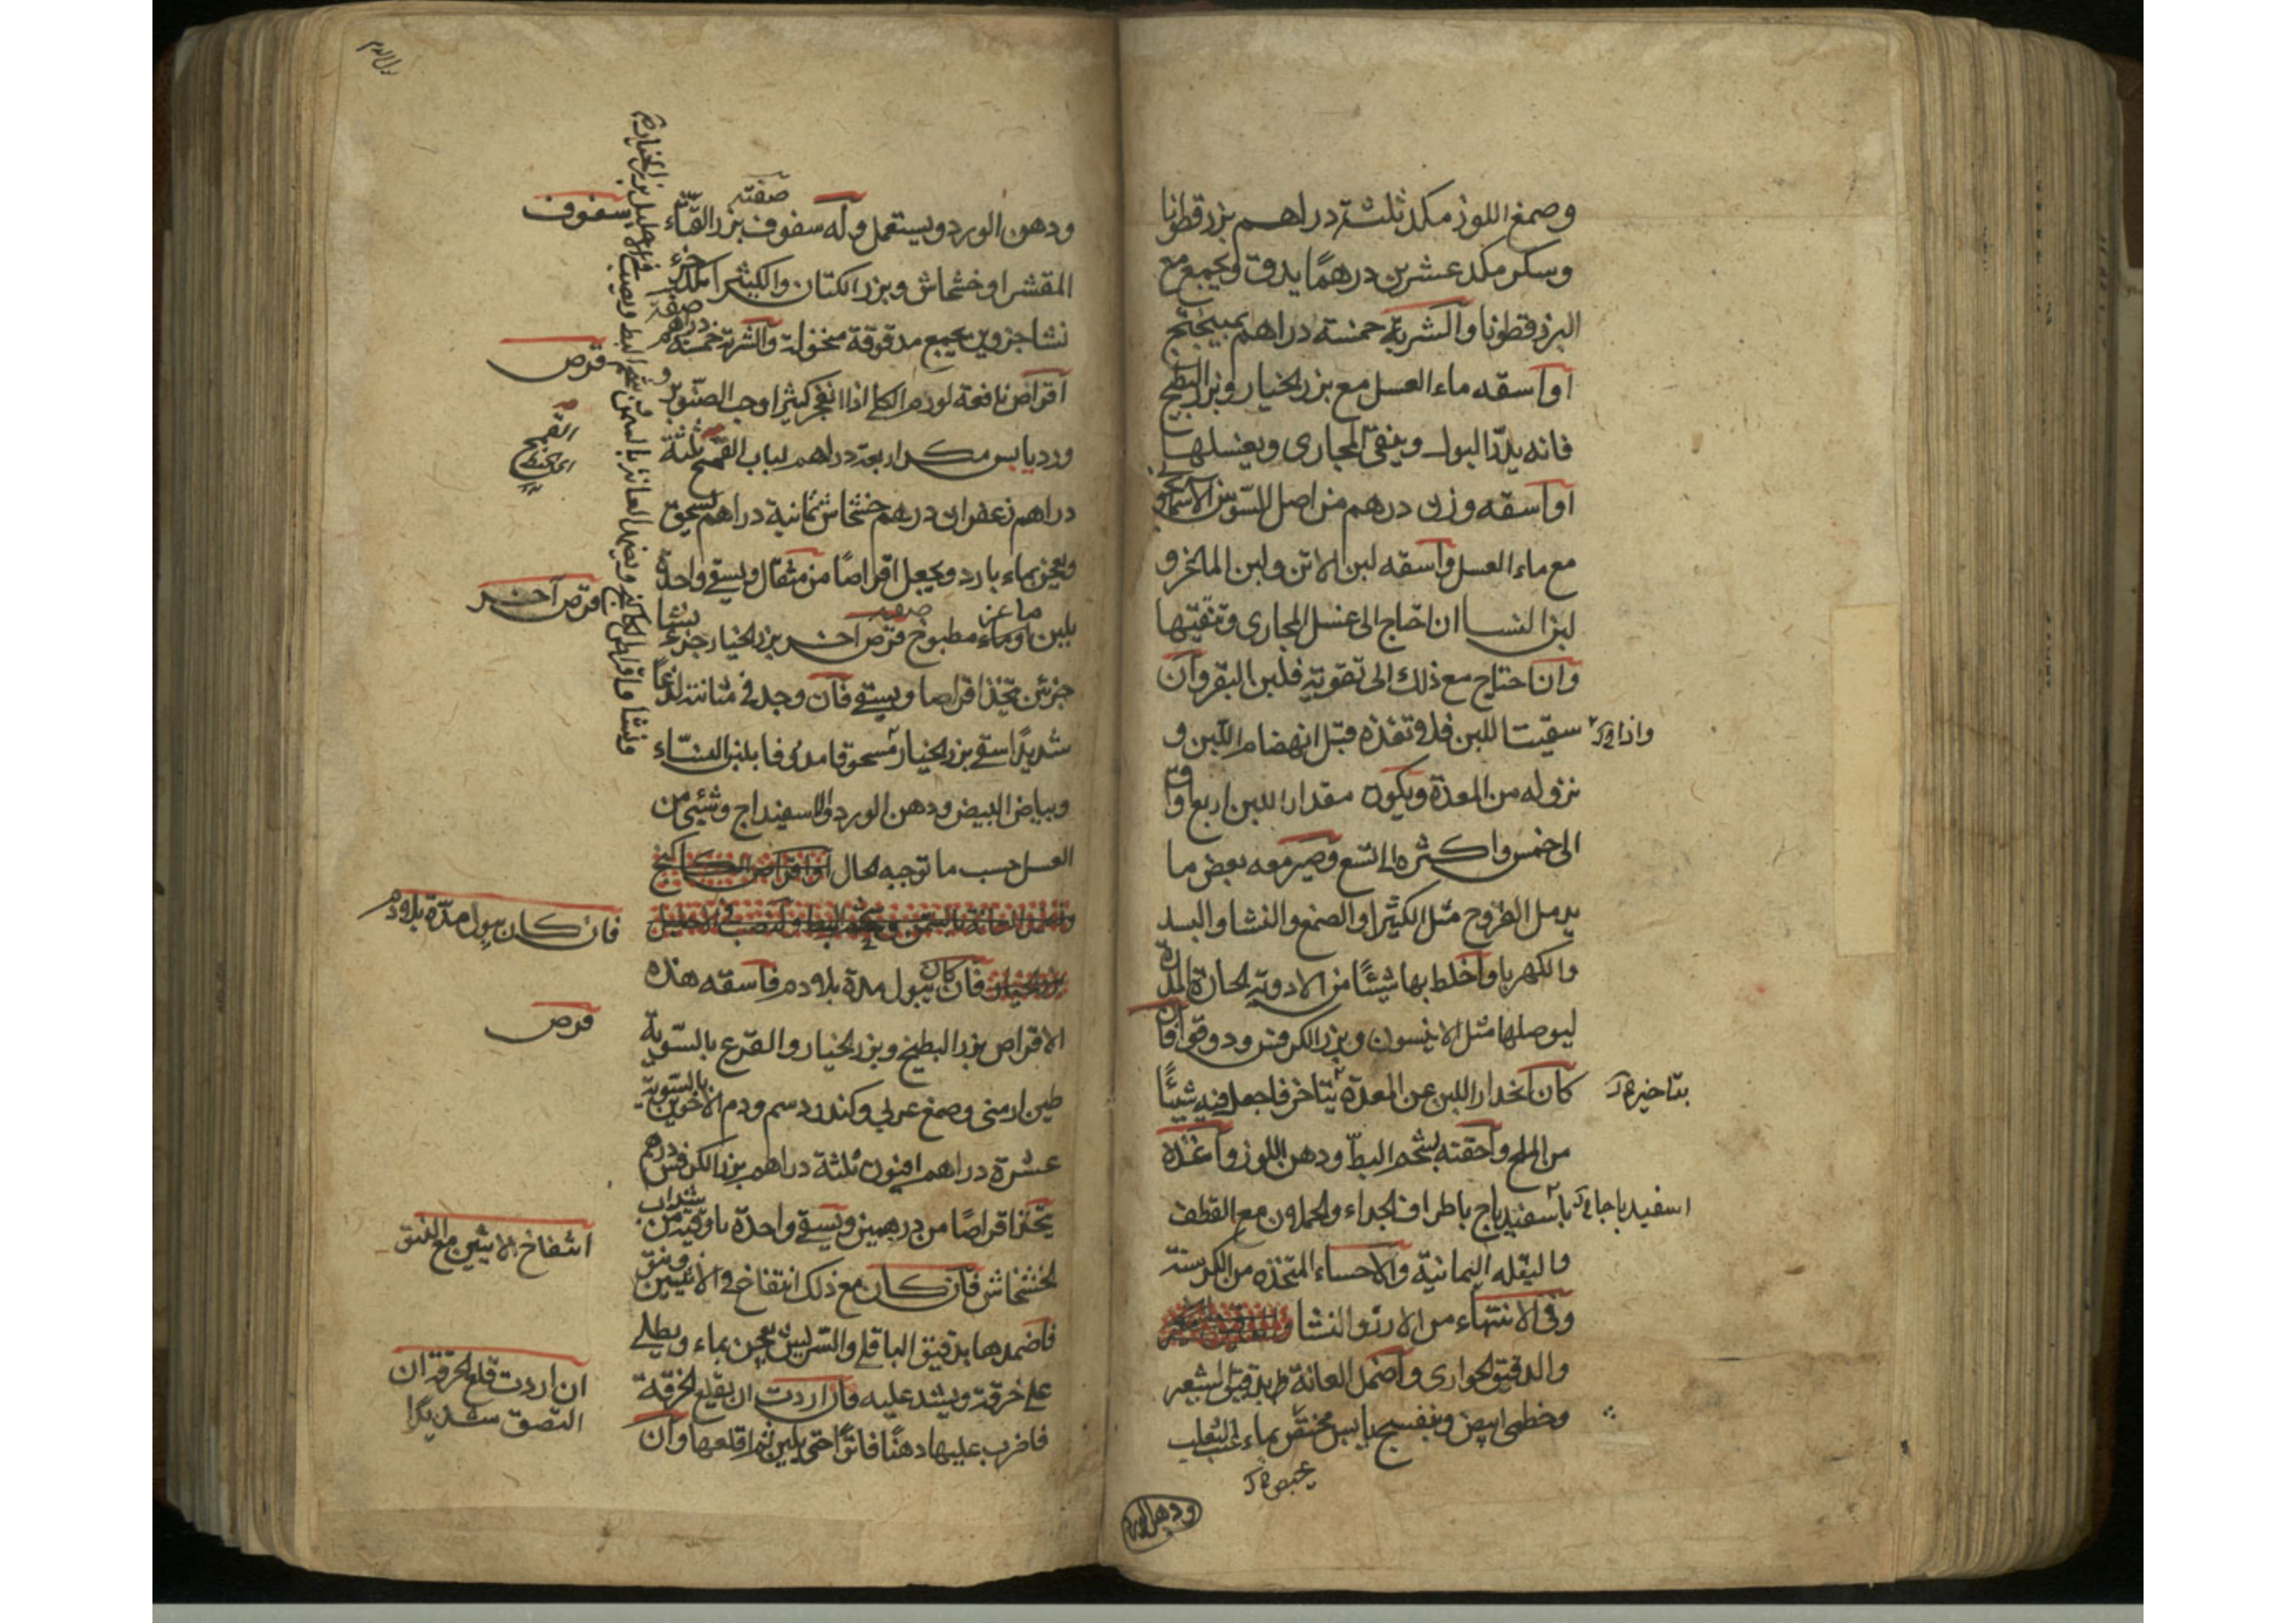 وصمغ اللوز مكد ثلثة دراهم بزرقطونا
وسكر مكد عشرين درهمًا يدق ويجمع مع
البزرقطونا والشربة خمسة دراهم بميبختج
او اسقه ماء العسل مع بزر الخيار وبزر البطيخ
فانه يدرّ البول وينقى المجارى ويغسلها
او اسقه وزن درهم من اصل السّوسن الاسمانجونى
مع ماء العسل واسقه لبن الاتن ولبن الماعز و
لبن النسا ان احتاج الى غسل المجارى وتنقيتها
وان احتاج مع ذلك الى تقوية فلبن البقر وان
سقيت اللبن فلا تغذه قبل انهضام اللبن و
واذا
نزوله من المعدة ويكون مقدار اللبن اربع اواق
الى خمس واكثره الى تسع وصير معه بعض ما
يدمل القروح مثل الكثيرا والصمغ والنشا والبسد
والكهربا واخلط بها شيئًا من الادوية الحارة المدرة
ليوصلها مثل الانيسون وبزر الكرفس ودوقو فان
كان انحدار اللبن عن المعدة يتاخر فاجعل فيه شيئًا
بتاخير
من الملح واحقنه بشحم البطّ ودهن اللوز واغذه
باسفيدباج باطراف الجداء والحملان مع القطف
اسفيدباجا
والبقله اليمانيّة والاحساء المتخذه من الكرسنة
وفى الانتهاء من الارز والنشا
والدقيق الحوارى واضمد العانة بدقيق الشعير
وخطمى ابيض وبنفسج يابس بماء عنب الثعلب
ودهن الورد
ودهن الورد ويستعمل وله سفوف بزر القثّاء
صفته
سفوف
المقشر وخشخاش وبزر الكتان والكثيرا مكد جزء
نشا جزوين يجمع مدقوقة منخولة والشربة خمسة دراهم
صفة
قرص
اقراص نافعة لورم الكلى اذا انفجر كثيرا وحب الصنوبر
وورد يابس مكد اربعة دراهم لباب القمح ثلثة
القمح
اى الحنطة
دراهم زعفران درهم خشخاش ثمانية دراهم يسحق
ويعجن بماء بارد ويجعل اقراصًا من مثقال ويسقى واحدة
بلبن ماعز او ماء مطبوخ قرص اخر بزر الخيار جزء نشا
صفة
قرص آخر
جزئين يتخذ اقراصا ويسقى فان وجد فى مثانته لذعًا
شديدًا اسقى بزر الخيار مسحوقا مدوفا بلبن النساء
وبياض البيض ودهن الورد والاسفيداج وشيئ من
العسل حسب ما توجبه الحال او اقراص الكاكنج
بزر الخيار فان كان يبول مدة بلا دم فاسقه هذه
فان كان يبول مدّة بلا دم
الاقراص بزر البطيخ وبزر الخيار والقرع بالسّوية
قرص
طين ارمنى وصمغ عربى وكندر دسم ودم الاخوين بالسّوية
عشرة دراهم افيون ثلثة دراهم بزر الكرفس درهم
يتخذ اقراصًا من درهمين ويسقى واحدة باوقية من شراب
الخشخاش فان كان مع ذلك انتفاخ فى الانثيين وفتق
انتفاخ الانثيين مع الفتق
فاضمدها بدقيق الباقلى والتربس يعجن بماء ويطلى
على خرقة ويشد عليه فان اردت ان يقلع الخرقة
ان اردت قلع الخرقة ان
التصق شديدًا
فاضرب عليها دهنًا فاترًا حتى يلين ثم اقلعها وان